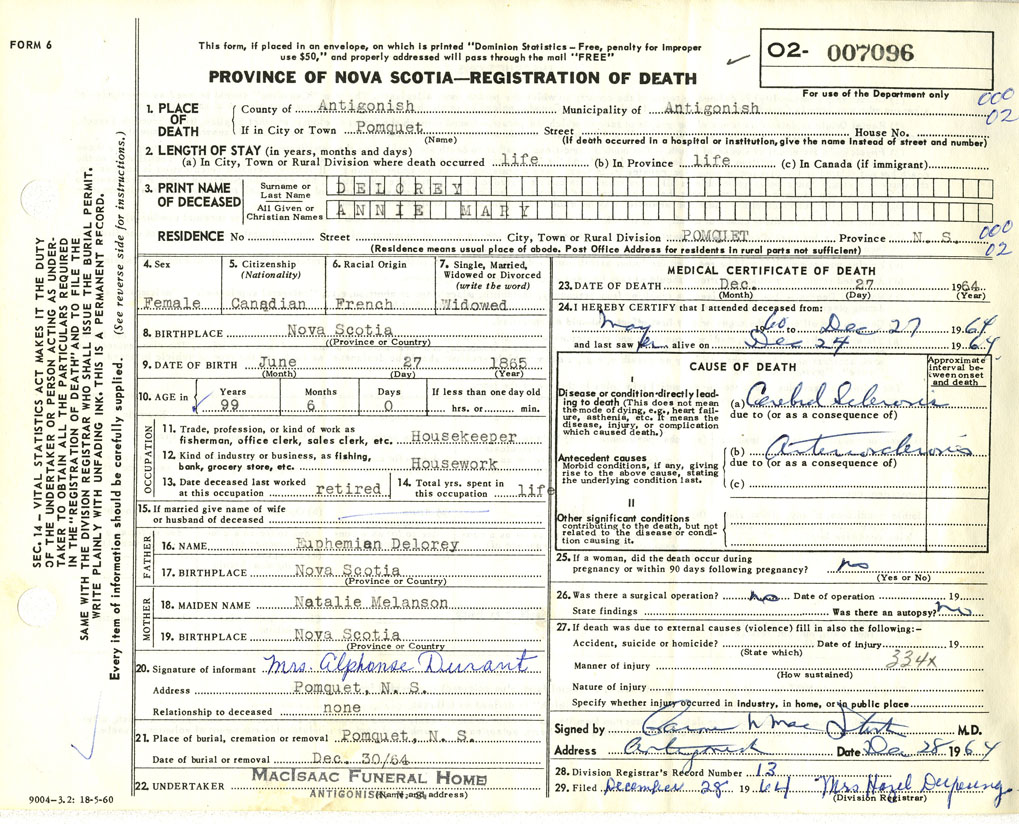 FORM 6
This form, if placed in an envelope, on which is printed "Dominion Statistics – Free, penalty for improper
use $50," and properly addressed will pass through the mail "FREE"
PROVINCE OF NOVA SCOTIA—REGISTRATION OF DEATH
02- 007096
For use of the Department only
000
02
SEC. 14 – VITAL STATISTICS ACT MAKES IT THE DUTY
OF THE UNDERTAKER OR PERSON ACTING AS UNDER-
TAKER TO OBTAIN ALL THE PARTICULARS REQUIRED
IN THE "REGISTRATION OF DEATH" AND TO FILE THE
SAME WITH THE DIVISION REGISTRAR WHO SHALL ISSUE THE BURIAL PERMIT.
WRITE PLAINLY WITH UNFADING INK. THIS IS A PERMANENT RECORD.
Every item of information should be carefully supplied. (See reverse side for instructions.)
1. PLACE OF DEATH
County of Antigonish Municipality of Antigonish
If in City or Town Pomquet Street House No.
(Name) (If death occurred in a hospital or institution, give the name instead of street and number)
2. LENGTH OF STAY (in years, months and days)
(a) In City, Town or Rural Division where death occurred life (b) In Province life (c) In Canada (if immigrant)
3. PRINT NAME OF DECEASED
Surname or Last Name DELOREY
All Given or Christian Names ANNIE MARY
RESIDENCE No Street City, Town or Rural Division POMQUET Province N. S.
000
02
(Residence means usual place of abode. Post Office Address for residents in rural parts not sufficient)
4. Sex
Female
5. Citizenship (Nationality)
Canadian
6. Racial Origin
French
7. Single, Married, Widowed or Divorced (write the word)
Widowed
8. BIRTHPLACE Nova Scotia
((Province or Country)
9. DATE OF BIRTH June 27 1865
(Month) (Day) (Year)
10. AGE in Years Months Days If less than one day old
99 6 0 hrs. or min.
OCCUPATION
11. Trade, profession, or kind of work as
fisherman, office clerk, sales clerk, etc. Housekeeper
12. Kind of industry or business, as fishing,
bank, grocery store, etc. Housework
13. Date deceased last worked
at this occupation retired
14. Total yrs. spent in
this occupation life
15. If married give name of wife
or husband of deceased
FATHER
16. NAME Euphemian Delorey
17. BIRTHPLACE Nova Scotia
(Province or Country)
MOTHER
18. MAIDEN NAME Natalie Melanson
19. BIRTHPLACE Nova Scotia
(Province or Country
20. Signature of informant Mrs. Alphonse Durant
Address Pomquet, N. S.
Relationship to deceased none
21. Place of burial, cremation or removal Pomquet, N. S.
Date of burial or removal Dec. 30/64
22. UNDERTAKER MACISAAC FUNERAL HOME
ANTIGONISH N. S.
(Name and address)
9004–3.2: 18-5-60
MEDICAL CERTIFICATE OF DEATH
23. DATE OF DEATH Dec. 27 1964
(Month) (Day) (Year)
24. I HEREBY CERTIFY that I attended deceased from:
May 1960 to Dec 27 1964
and last saw her alive on Dec 24 1964
CAUSE OF DEATH
Approximate interval between onset and death
I
Disease or condition directly lead-
ing to death (This does not mean
the mode of dying, e.g., heart fail-
ure, asthenia, etc. It means the
disease, injury, or complication
which caused death.)
(a) Cerebral Sclerosis
due to (or as a consequence of)
Antecedent causes
Morbid conditions, if any, giving
rise to the above cause, stating
the underlying condition last.
(b) Arteriosclerosis
due to (or as a consequence of)
(c)
II
Other significant conditions
contributing to the death, but not
related to the disease or condi-
tion causing it.
25. If a woman, did the death occur during
pregnancy or within 90 days following pregnancy? no
(Yes or No)
26. Was there a surgical operation? no Date of operation 19
State findings Was there an autopsy? no
27. If death was due to external causes (violence) fill in also the following:–
Accident, suicide or homicide? Date of injury 19
(State which)
334x
Manner of injury
(How sustained)
Nature of injury
Specify whether injury occurred in industry, in home, or in public place
Signed by M.D.
Address Antigonish Date Dec 28 1964
28. Division Registrar's Record Number 13
29. Filed December 28 1964 Mrs Hazel
(Division Registrar)